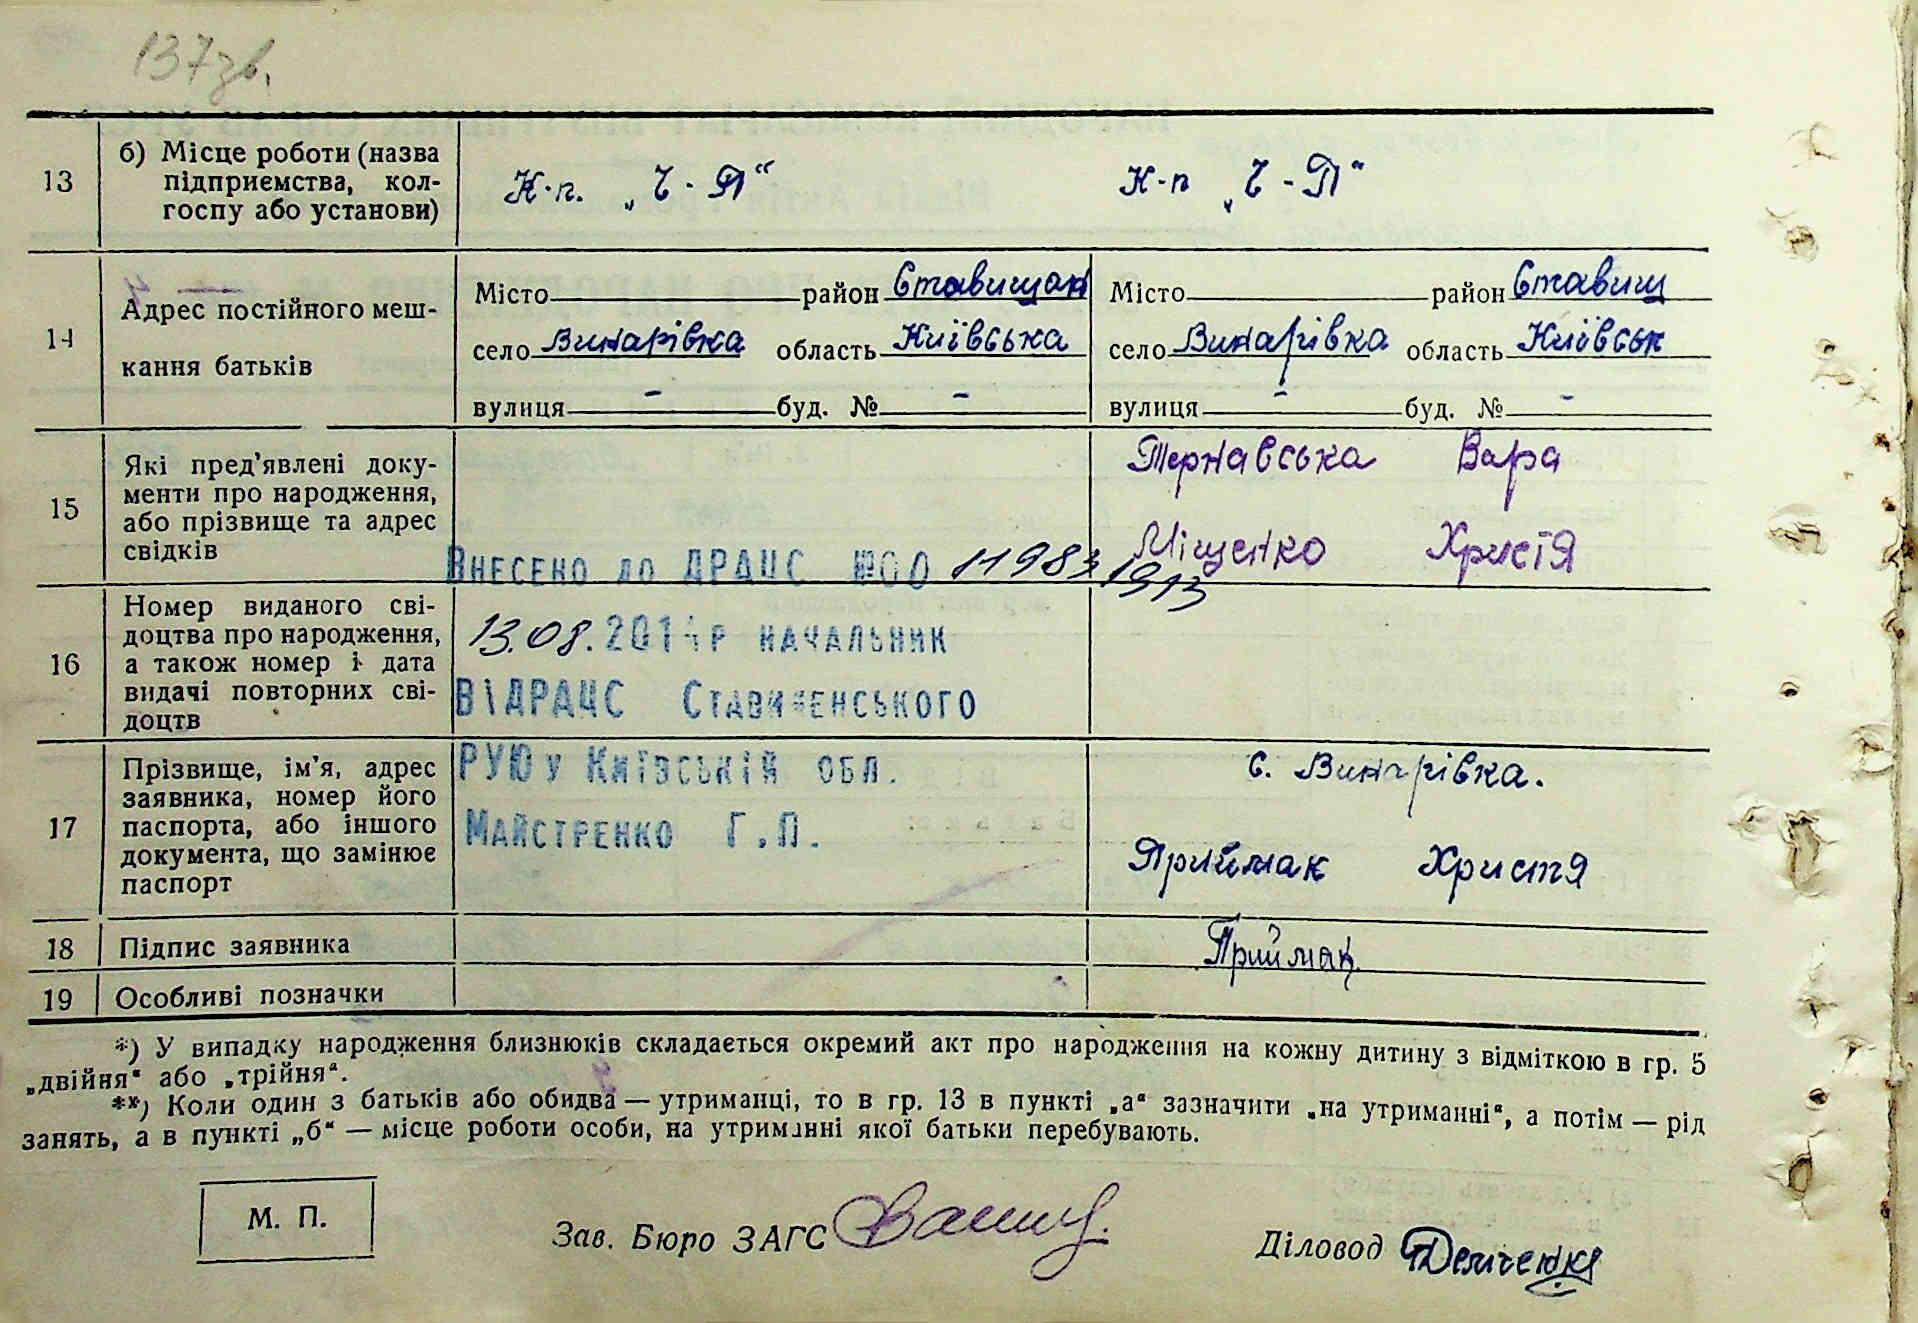 137зв.
13 б) Місце роботи (назва
підприємства, кол-
госпу або установи)
К-п. „Ч - П“ К-п „Ч - П“
14 Адрес постійного меш-
кання батьків
Місто район Ставищан Місто район Ставищ
село Винарівка область Київська село Винарівка область Київськ
вулиця - буд. № - вулиця - буд. № -
15 Які пред'явлені доку-
менти про народження,
або прізвище та адрес
свідків
Тернавська Вара
Міщенко Христя
Внесено до ДРАЦС №00 11983 1913
16 Номер виданого сві-
доцтва про народження,
а також номер і дата
видачі повторних сві-
доцтв
13.08.2014р начальник
ВІДРАЦС Ставищенського
РУЮ у Київській обл.
Майстренко Г.П.
17 Прізвище, ім'я, адрес
заявника, номер його
паспорта, або іншого
документа, що замінює
паспорт
с. Винарівка.
Приймак Христя
18 Підпис заявника Приймак
19 Особливі позначки
*) У випадку народження близнюків складається окремий акт про народження на кожну дитину з відміткою в гр. 5
„двійня“ або „трійня“.
**) Коли один з батьків або обидва — утриманці, то в гр. 13 в пункті „а“ зазначити „на утриманні“, а потім — рід
занять, а в пункті „б“ — місце роботи особи, на утриманні якої батьки перебувають.
М. П.
Зав. Бюро ЗАГС
Діловод Демченко